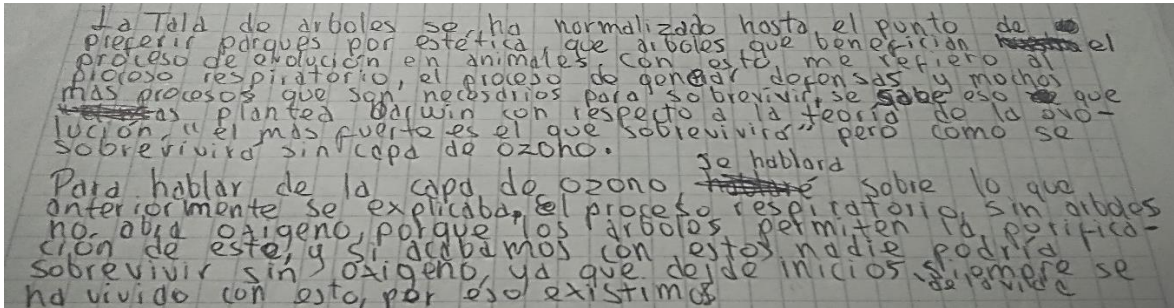 La Tala de arboles se ha normalizado hasta el punto de
preferir parques por estética, que arboles, que benefician el
proceso de evolución en animales, con esto, me refiero al
proceso respiratorio, el proceso de generar defensas y muchos
mas procesos que son necesarios para sobrevivir, se sabe eso que
planteo Darwin con respecto a la teoria de la evo-
lución, "el más fuerte es el que sobrevivira" pero como se
sobrevivira sin capa de ozono.
Para hablar de la capa de ozono, se hablara sobre lo que
anteriormente se explicaba, el proceso respiratorio, sin arboles
no abra oxigeno, porque los arboles permiten la purifica-
ción de este, y si acabamos con estos nadie podria
sobrevivir sin oxigeno, ya que desde inicios siempre se
ha vivido con esto, por eso existimos